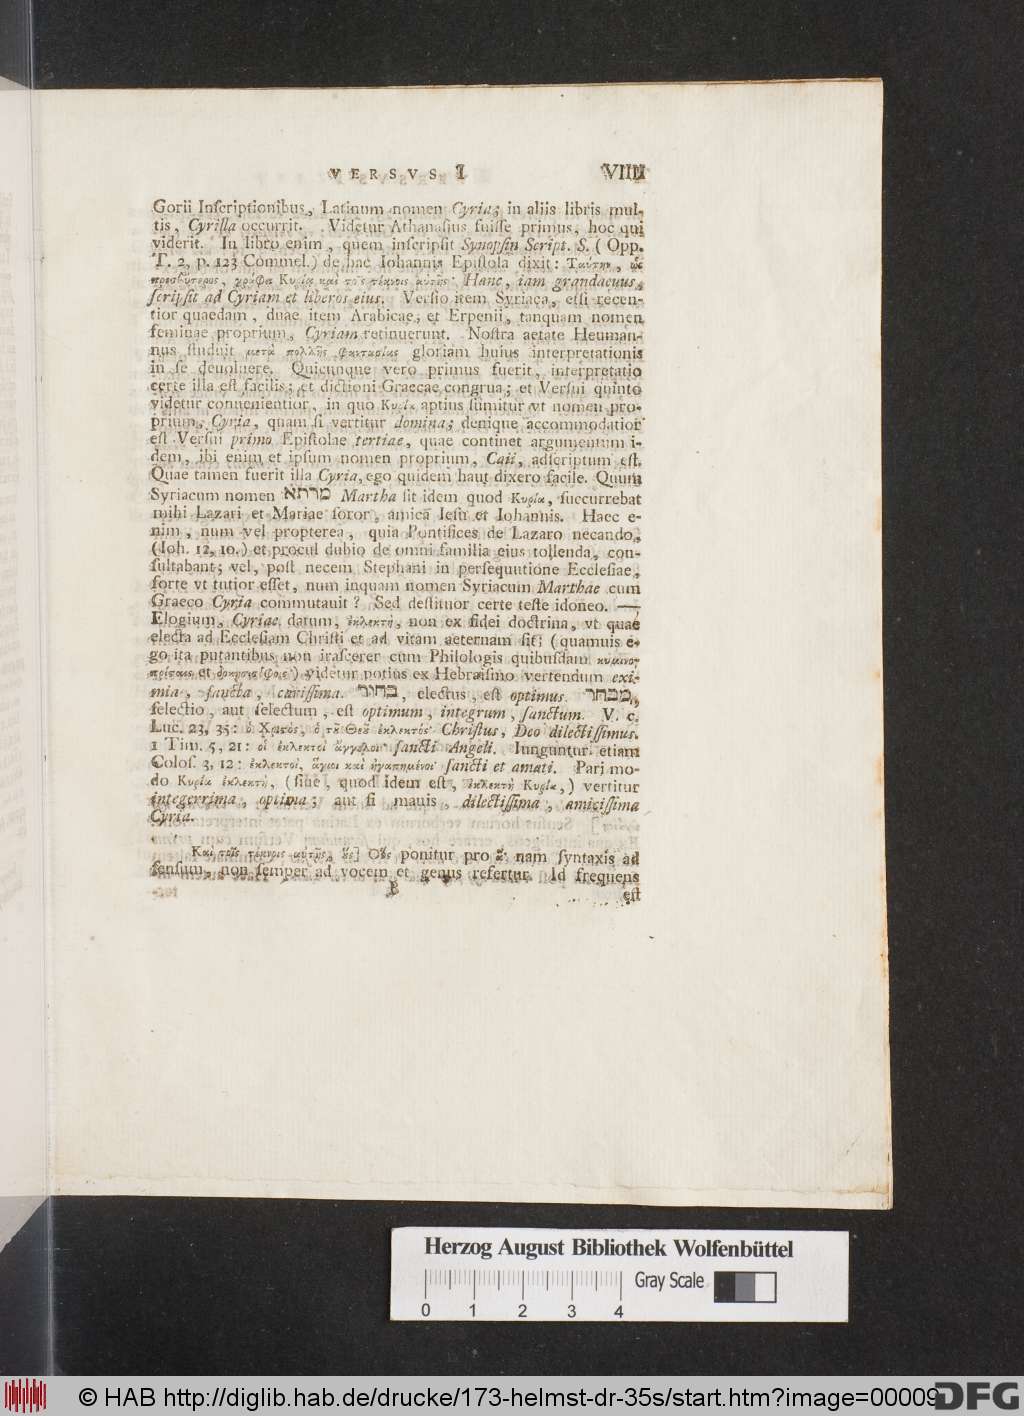 VERSVS I VIIII
Gorii Inſcriptionibus, Latinum nomen Cyria; in aliis libris mul-
tis, Cyrilla occurrit. Videtur Athanaſius fuiſſe primus, hoc qui
viderit. In libro enim, quem inſcripſit Synopſin Script. S. (Opp.
T. 2, p. 123 Commel.) de hac Iohannis Epiſtola dixit: Ταύτην, ὡς
πρεσβύτερος, γράφει Κυρίᾳ καὶ τοῖς τέκνοις αὐτῆς· Hanc, iam grandaeuus,
ſcripſit ad Cyriam et liberos eius. Verſio item Syriaca, etſi recen-
tior quaedam, duae item Arabicae, et Erpenii, tanquam nomen
feminae proprium, Cyriam retinuerunt. Noſtra aetate Heuman-
nus ſtuduit μετὰ πολλῆς φαντασίας gloriam huius interpretationis
in ſe deuoluere. Quicunque vero primus fuerit, interpretatio
certe illa eſt facilis; et dictioni Graecae congrua; et Verſui quinto
videtur conuenientior, in quo Κυρία aptius ſumitur vt nomen pro-
prium, Cyria, quam ſi vertitur domina; denique accommodatior
eſt Verſui primo Epiſtolae tertiae, quae continet argumentum i-
dem, ibi enim et ipſum nomen proprium, Caii, adſcriptum eſt.
Quae tamen fuerit illa Cyria, ego quidem haut dixero facile. Quum
Syriacum nomen מרתא Martha ſit idem quod Κυρία, ſuccurrebat
mihi Lazari et Mariae ſoror, amica Ieſu et Iohannis. Haec e-
nim, num vel propterea, quia Pontifices de Lazaro necando,
(Ioh. 12, 10.) et procul dubio de omni familia eius tollenda, con-
ſultabant; vel, poſt necem Stephani in perſequutione Eccleſiae,
forte vt tutior eſſet, num inquam nomen Syriacum Marthae cum
Graeco Cyria commutauit? Sed deſtituor certe teſte idoneo. —
Elogium, Cyriae datum, ἐκλεκτὴ, non ex fidei doctrina, vt quae
electa ad Eccleſiam Chriſti et ad vitam aeternam ſit; (quamuis e-
go ita putantibus non iraſcerer cum Philologis quibuſdam
et) videtur potius ex Hebraiſmo vertendum exi-
mia, ſancta, cariſſima. בחור, electus, eſt optimus. מבחר,
ſelectio, aut ſelectum, eſt optimum, integrum, ſanctum. V. c.
Luc. 23, 35: ὁ Χριστός, ὁ τοῦ Θεοῦ ἐκλεκτός· Chriſtus, Deo dilectiſſimus.
1 Tim. 5, 21: οἱ ἐκλεκτοὶ ἄγγελοι· ſancti Angeli. Iunguntur etiam
Coloſ. 3, 12: ἐκλεκτοὶ, ἅγιοι καὶ ἠγαπημένοι· ſancti et amati. Pari mo-
do Κυρία ἐκλεκτὴ, (ſiue, quod idem eſt, ἐκλεκτὴ Κυρία,) vertitur
integerrima, optima; aut ſi mauis, dilectiſſima, amiciſſima
Cyria.
Καὶ τοῖς τέκνοις αὐτῆς, οὓς] Οὓς ponitur pro ἃ· nam ſyntaxis ad
ſenſum, non ſemper ad vocem et genus refertur. Id frequens
B eſt
Herzog August Bibliothek Wolfenbüttel
Gray Scale
0 1 2 3 4
© HAB http://diglib.hab.de/drucke/173-helmst-dr-35s/start.htm?image=00009
DFG